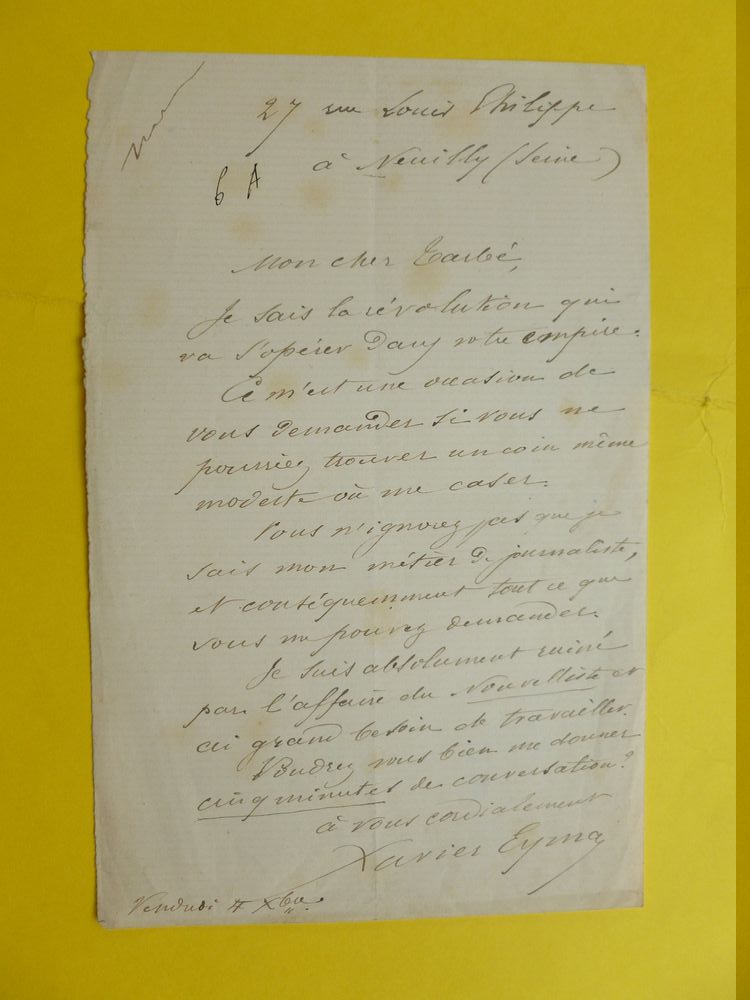 27 rue Louis Philippe
à Neuilly (Seine)
6 A
Mon cher Tarbé,
Je sais la révolution qui
va s'opérer dans votre empire.
Ce m'est une occasion de
vous demander si vous ne
pourriez trouver un coin même
modeste où me caser.
Vous n'ignorez pas que je
sais mon métier de journaliste,
et conséquemment tout ce que
vous me pouvez demander.
Je suis absolument ruiné
par l'affaire du Nouvelliste et
ai grand besoin de travailler.
Voudrez vous bien me donner
cinq minutes de conversation?
à vous cordialement
Xavier Eyma
Vendredi 4 Xbre.